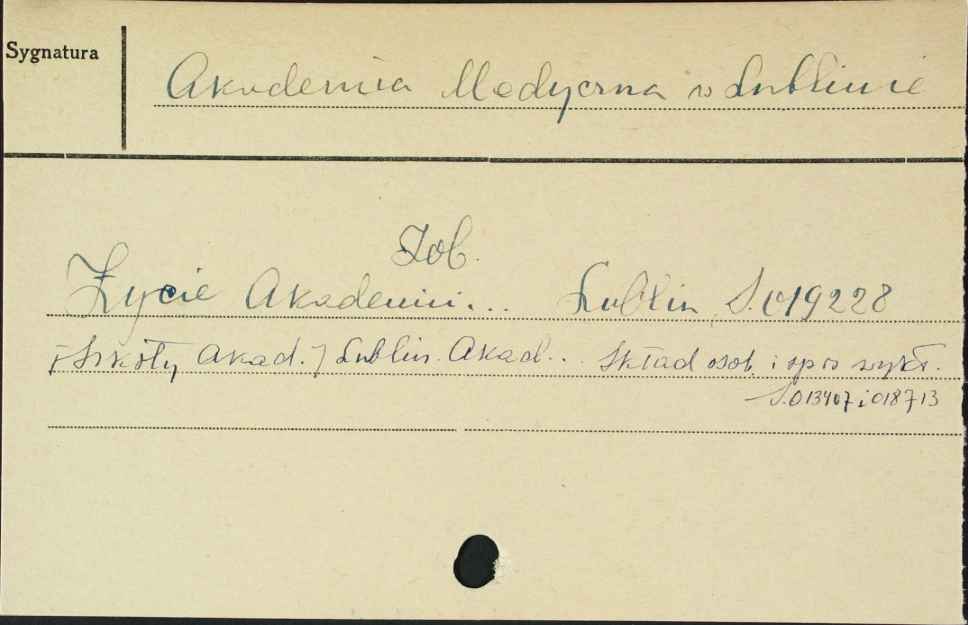 Sygnatura
Akademia Medyczna w Lublinie
Zob.
Życie Akademii... Lublin S.019228
[Szkoły Akad.] Lublin. Akad.. Skład osob. i spis wykł.
S.013407 i 018713